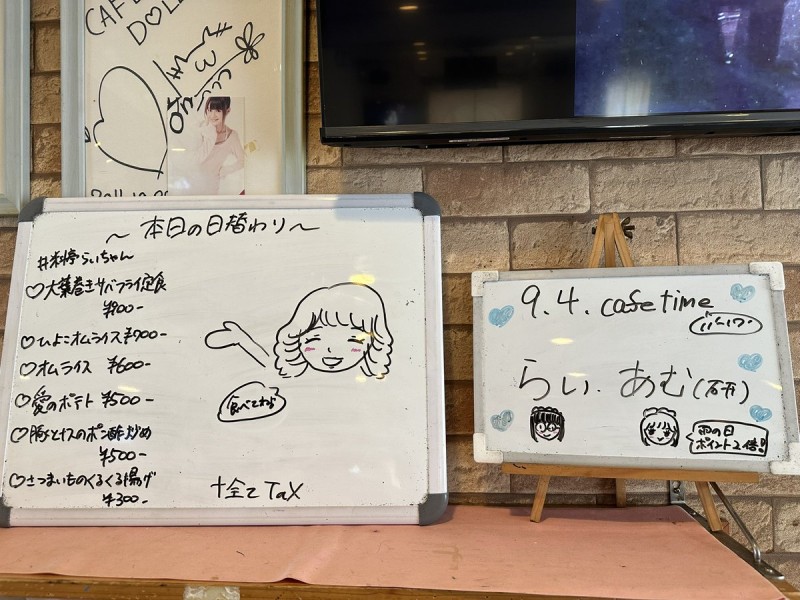 CAFE
DOLL
〜本日の日替わり〜
#料亭らいちゃん
♡大葉巻きサバフライ定食
¥900-
♡ひよこオムライス ¥700-
♡オムライス ¥600-
♡愛のポテト ¥500-
♡豚とナスのポン酢炒め
¥500-
♡さつまいものくるくる揚げ
¥300-
食べてね
+全てTax
9.4. cafe time
らい.あむ(研)
雨の日
ポイント2倍!